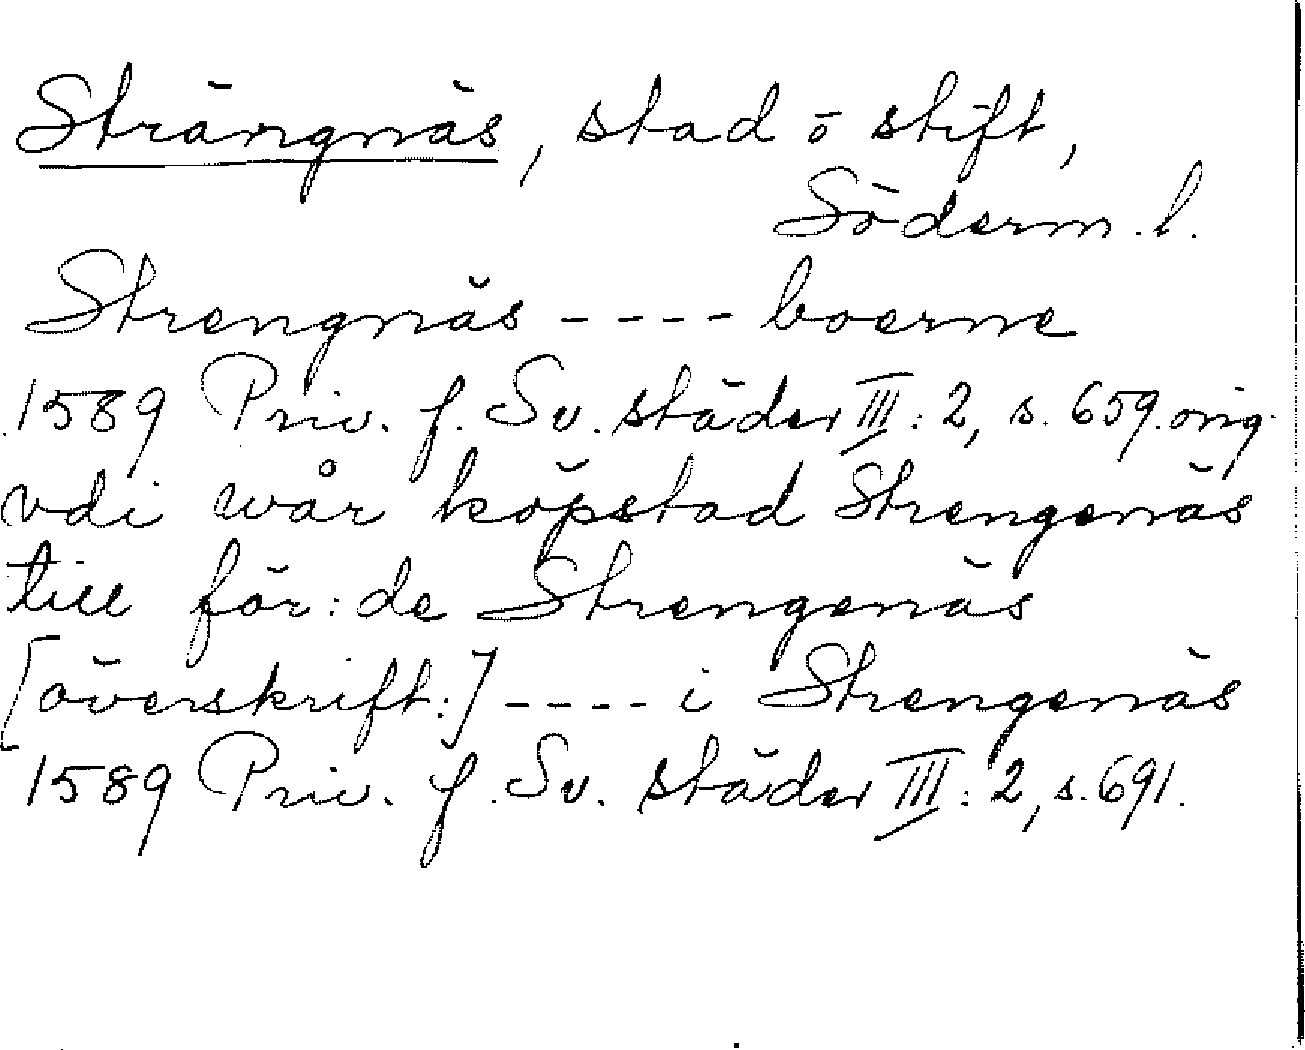 Strängnäs, stad o stift,
Söderm.l.
Strengnäs ---- boerne
1589 Priv. f. Sv. städer III:2, s. 659. orig.
vdi wår köpstad Strengenäs
till för:de Strengenäs
[överskrift:] ---- i Strengenäs
1589 Priv. f. Sv. städer III:2, s. 691.